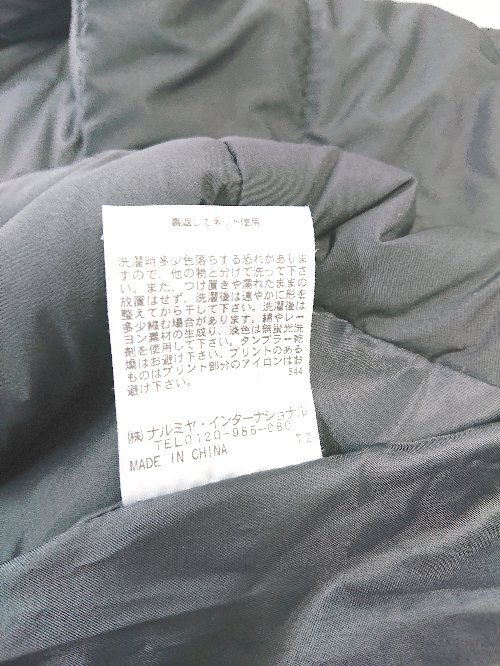 裏返してネット使用
洗濯時多少色落ちする恐れがありま
すので、他の物と分けて洗って下さ
い。また、つけ置きや濡れたままの
放置はせず、洗濯後は速やかに形を
整えてから干して下さい。洗濯後は
多少縮む場合があります。綿やレー
ヨン素材の生成り、淡色は無蛍光洗
剤を使用して下さい。タンブラー乾
燥はお避け下さい。プリントのある
ものはプリント部分のアイロンはお
避け下さい。
544
(株)ナルミヤ・インターナショナル
TEL0120-985-080
T2
MADE IN CHINA